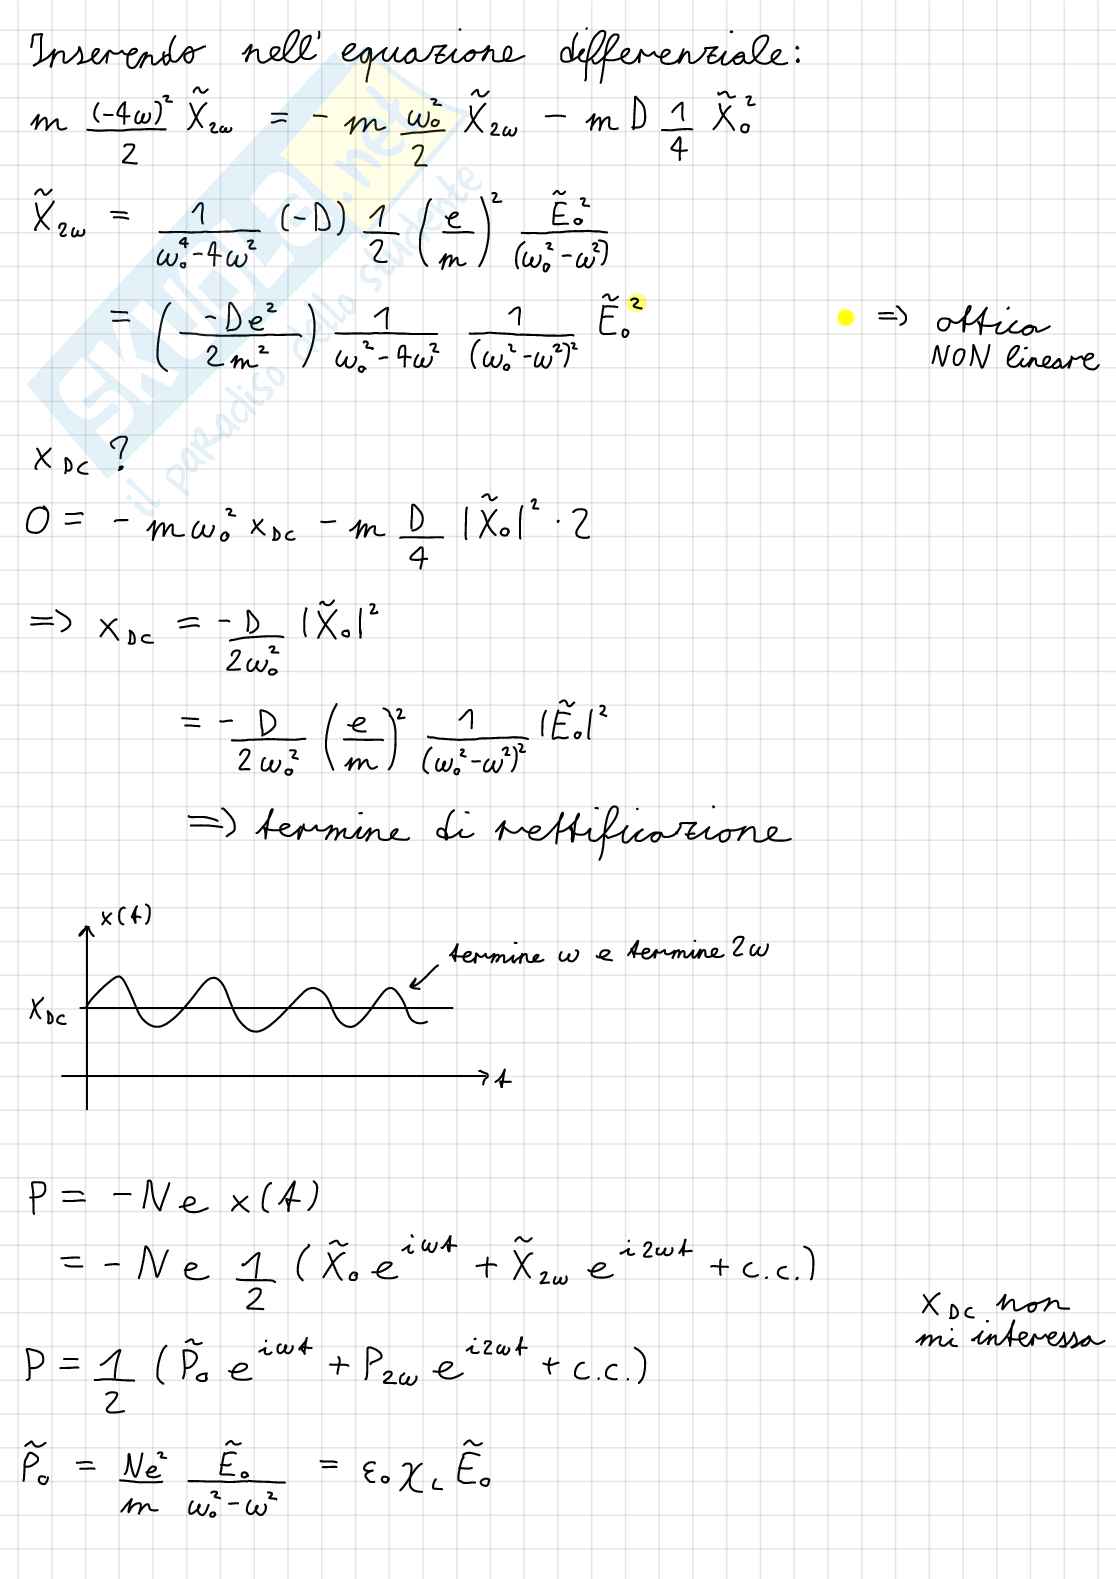 Inserendo nell'equazione differenziale:
m (-4ω)²/2 X̃₂ω = - m ω₀²/2 X̃₂ω - m D 1/4 X̃₀²
X̃₂ω = 1/(ω₀⁴-4ω²) (-D) 1/2 (e/m)² Ẽ₀²/(ω₀²-ω²)
= (-De²/2m²) 1/(ω₀²-4ω²) 1/(ω₀²-ω²)² Ẽ₀²
=> ottica
NON lineare
x_DC ?
0 = - mω₀² x_DC - m D/4 |X̃₀|² · 2
=> x_DC = -D/2ω₀² |X̃₀|²
= -D/2ω₀² (e/m)² 1/(ω₀²-ω²)² |Ẽ₀|²
=> termine di rettificazione
x(t)
termine ω e termine 2ω
X_DC
t
P = -Ne x(t)
= -Ne 1/2 (X̃₀ e^{iωt} + X̃₂ω e^{i2ωt} + c.c.)
x_DC non
mi interessa
P = 1/2 (P̃₀ e^{iωt} + P₂ω e^{i2ωt} + c.c.)
P̃₀ = Ne²/m Ẽ₀/(ω₀²-ω²) = ε₀ χ_L Ẽ₀
SKUOLA.net
il paradiso dello studente